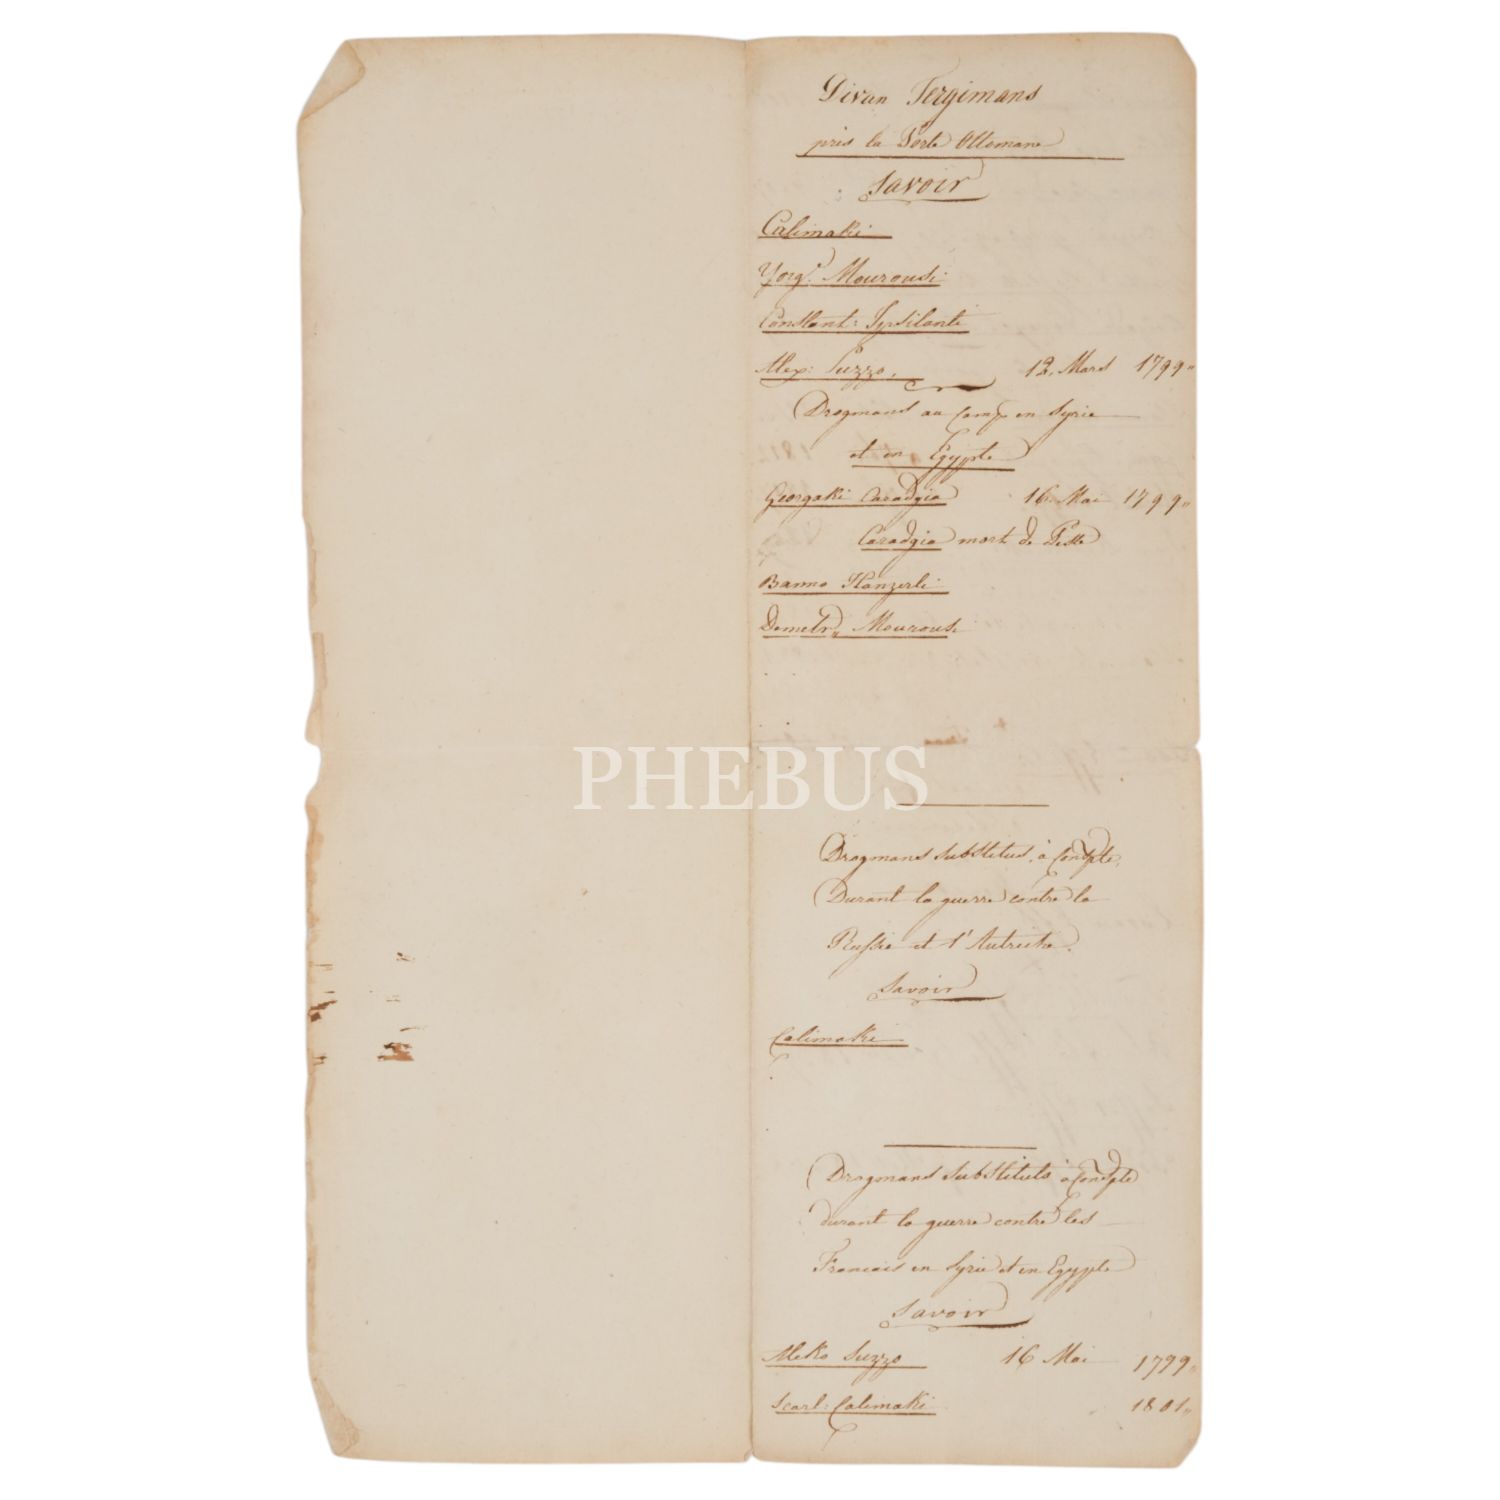 Divan Tergimans
près la Porte Ottomane
Savoir
Calimaki
Yorg. Mourousi
Constant: Ypsilanti
Alex: Suzzo. 12. Mars 1799
Drogmans au Camp en Syrie
et en Egypte
Georgaki Caradgia 16. Mai 1799
Caradgia mort de Peste
Banno Hanzerli
Demetr. Mourousi
PHEBUS
Drogmans Substitus, à Consple,
Durant la guerre contre la
Russie et l'Autriche.
Savoir
Calimaki
Drogmans Substituts à Consple
durant la guerre contre les
Francais en Syrie et en Egypte
Savoir
Aleko Suzzo 16 Mai 1799
Scarl: Calimaki 1801